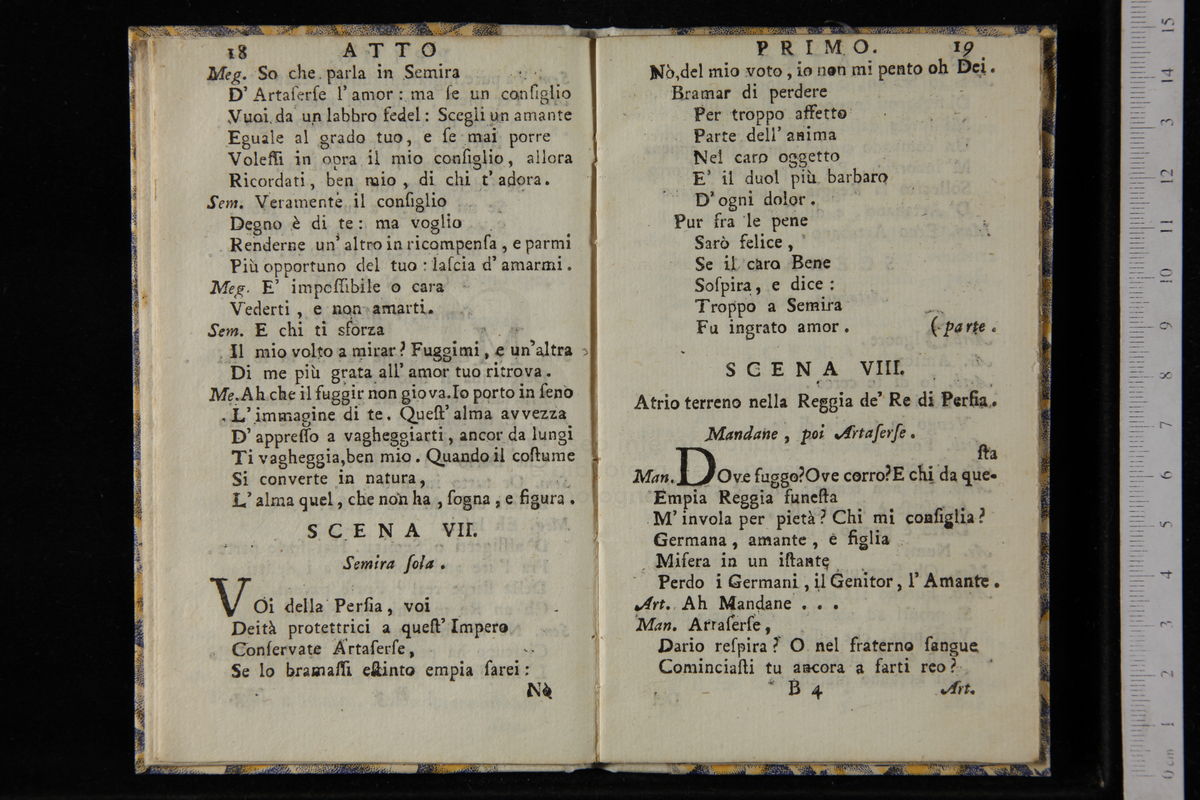 18 ATTO
Meg. So che parla in Semira
D' Artaſerſe l' amor : ma ſe un conſiglio
Vuoi da un labbro fedel : Scegli un amante
Eguale al grado tuo, e ſe mai porre
Voleſſi in opra il mio conſiglio, allora
Ricordati, ben mio, di chi t' adora.
Sem. Veramente il conſiglio
Degno è di te : ma voglio
Renderne un' altro in ricompenſa, e parmi
Più opportuno del tuo : laſcia d' amarmi.
Meg. E' impoſſibile o cara
Vederti, e non amarti.
Sem. E chi ti sforza
Il mio volto a mirar? Fuggimi, e un' altra
Di me più grata all' amor tuo ritrova.
Me. Ah che il fuggir non giova. Io porto in ſeno
L' immagine di te. Queſt' alma avvezza
D' appreſſo a vagheggiarti, ancor da lungi
Ti vagheggia, ben mio. Quando il coſtume
Si converte in natura,
L' alma quel, che non ha, ſogna, e figura.
SCENA VII.
Semira ſola.
VOi della Perſia, voi
Deità protettrici a queſt' Impero
Conſervate Artaſerſe,
Se lo bramaſſi eſtinto empia ſarei :
Nò
PRIMO. 19
Nò, del mio voto, io non mi pento oh Dei.
Bramar di perdere
Per troppo affetto
Parte dell' anima
Nel caro oggetto
E' il duol più barbaro
D' ogni dolor.
Pur fra le pene
Sarò felice,
Se il caro Bene
Soſpira, e dice :
Troppo a Semira
Fu ingrato amor. (parte.
SCENA VIII.
Atrio terreno nella Reggia de' Re di Perſia.
Mandane, poi Artaſerſe.
ſta
Man. DOve fuggo? Ove corro? E chi da que-
Empia Reggia funeſta
M' invola per pietà? Chi mi conſiglia?
Germana, amante, e figlia
Miſera in un iſtante
Perdo i Germani, il Genitor, l' Amante.
Art. Ah Mandane . . .
Man. Artaſerſe,
Dario reſpira? O nel fraterno ſangue
Cominciaſti tu ancora a farti reo?
B 4 Art.
0 cm 1 2 3 4 5 6 7 8 9 10 11 12 13 14 15